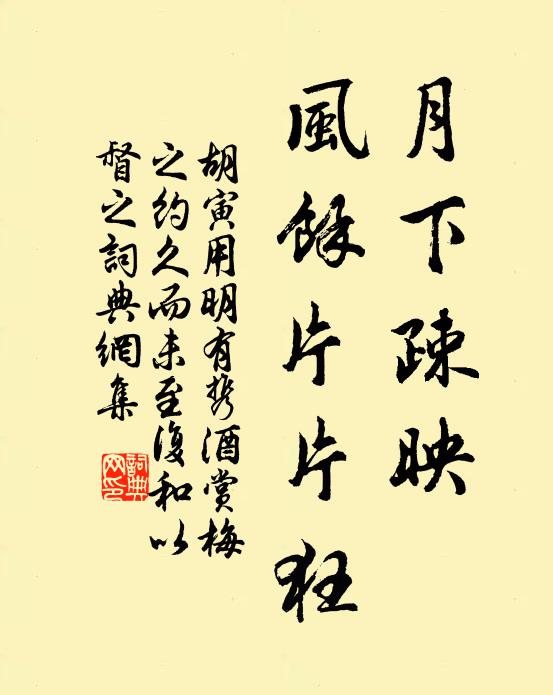 月下疎映
風餘片片狂
胡寅用明有携酒賞梅
之約久而未至復和以
督之詞典網集
詞典
网印